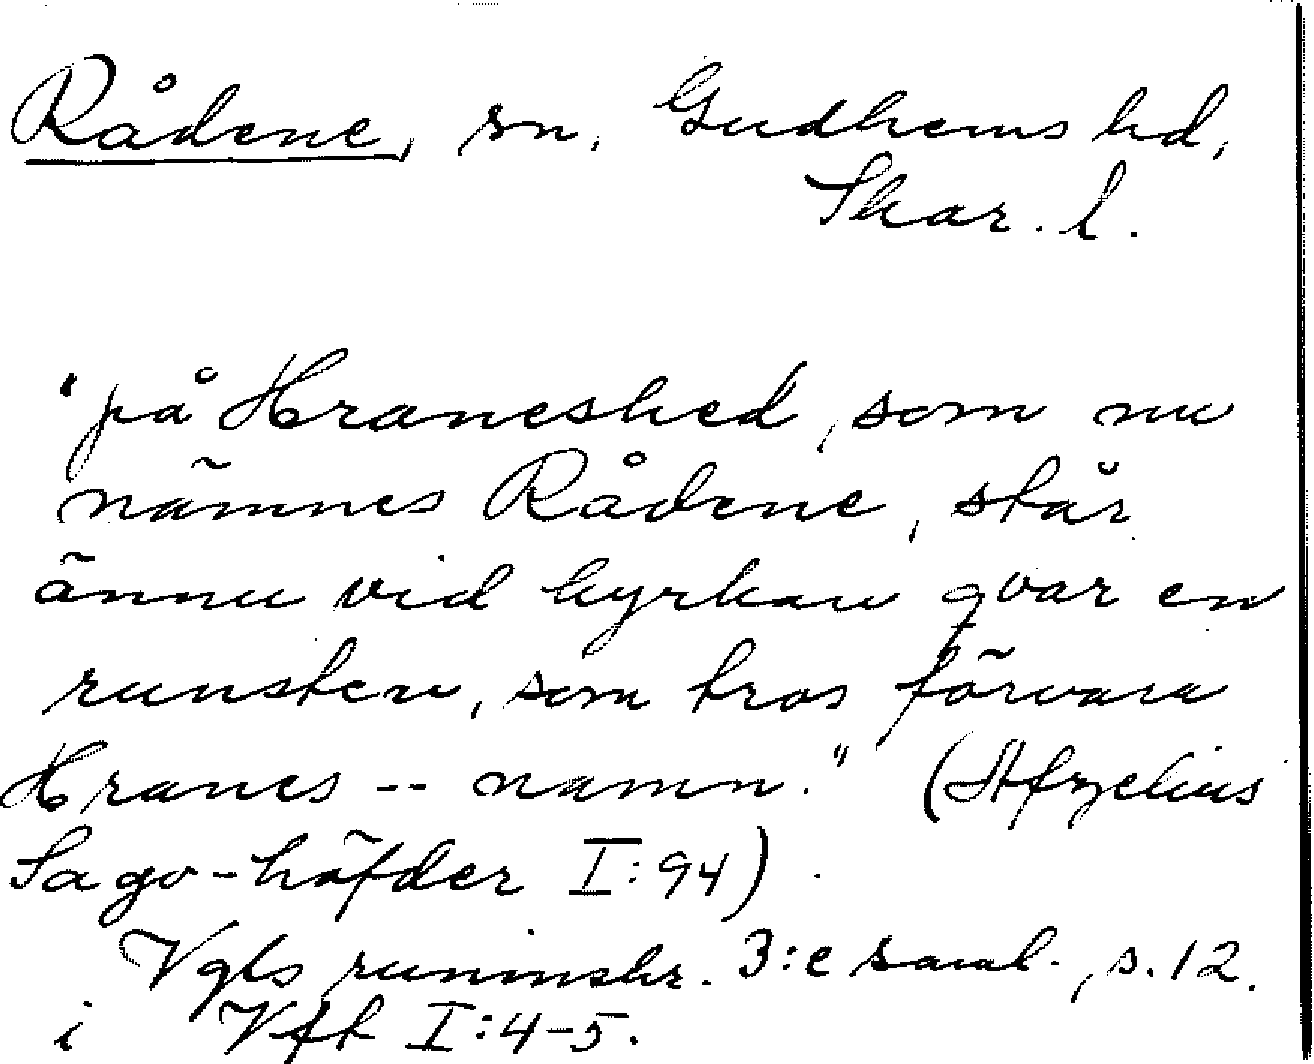 Rådene, sn, Gudhems hd,
Skar. l.
"på Hraneshed, som nu
nämnes Rådene, står
ännu vid kyrkan qvar en
runsten, som tros förvara
Hranes -- namn." (Afzelius
Sago-häfder I:94)
Vgls runinskr. 3:e saml., s. 12.
i Vft I:4-5.